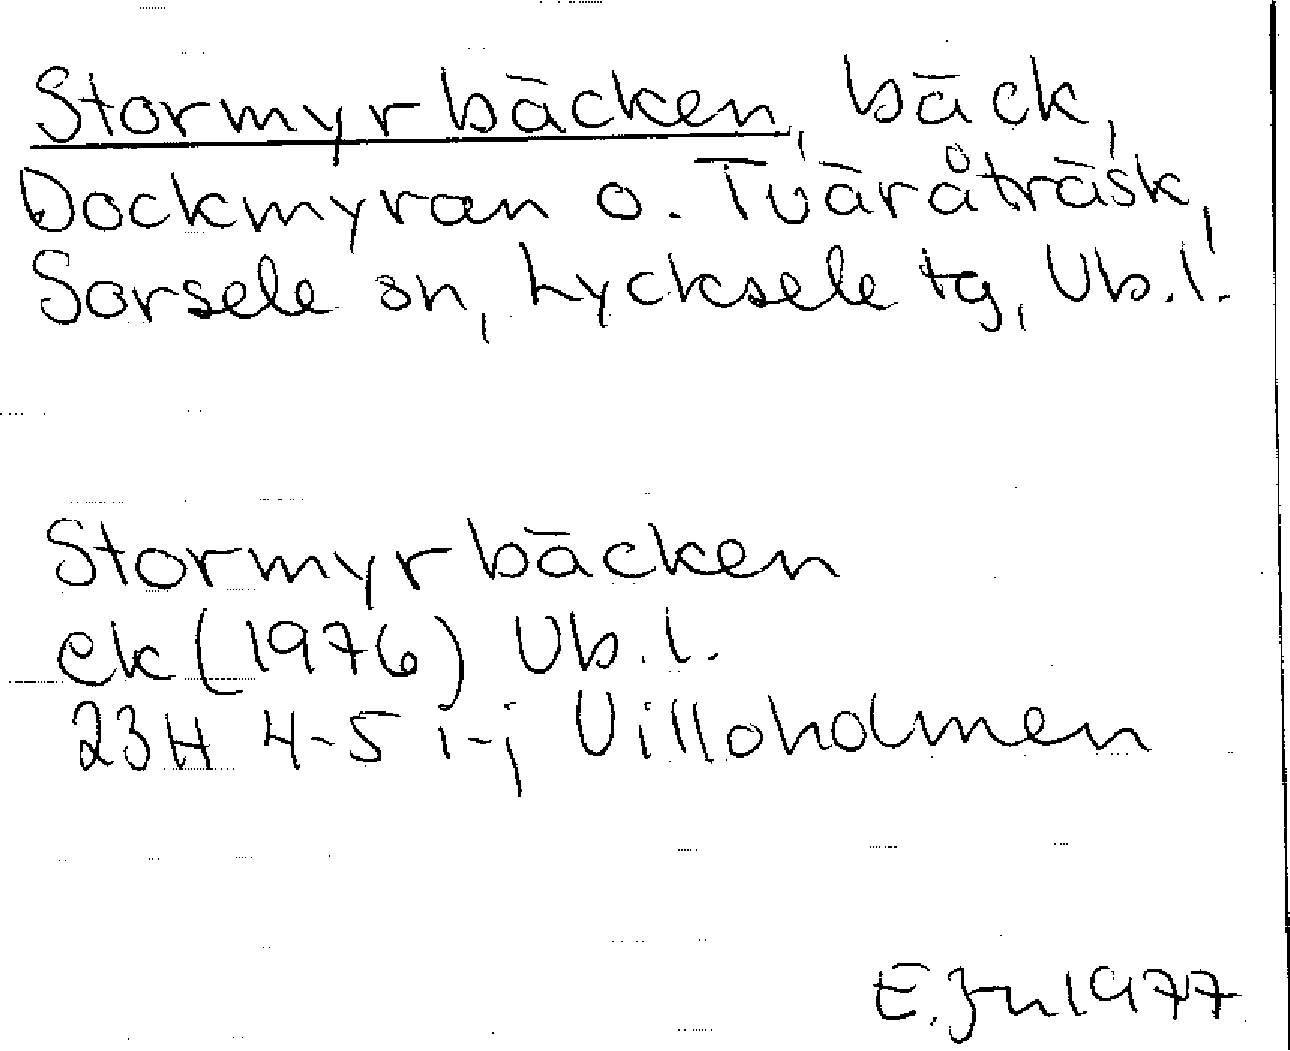 Stormyrbäcken, bäck,
Dockmyran o. Tväråträsk,
Sorsele sn, Lycksele tg, Vb.l.
Stormyrbäcken
ek (1976) Vb.l.
23H 4-5 i-j Villoholmen
E. Jn 1977